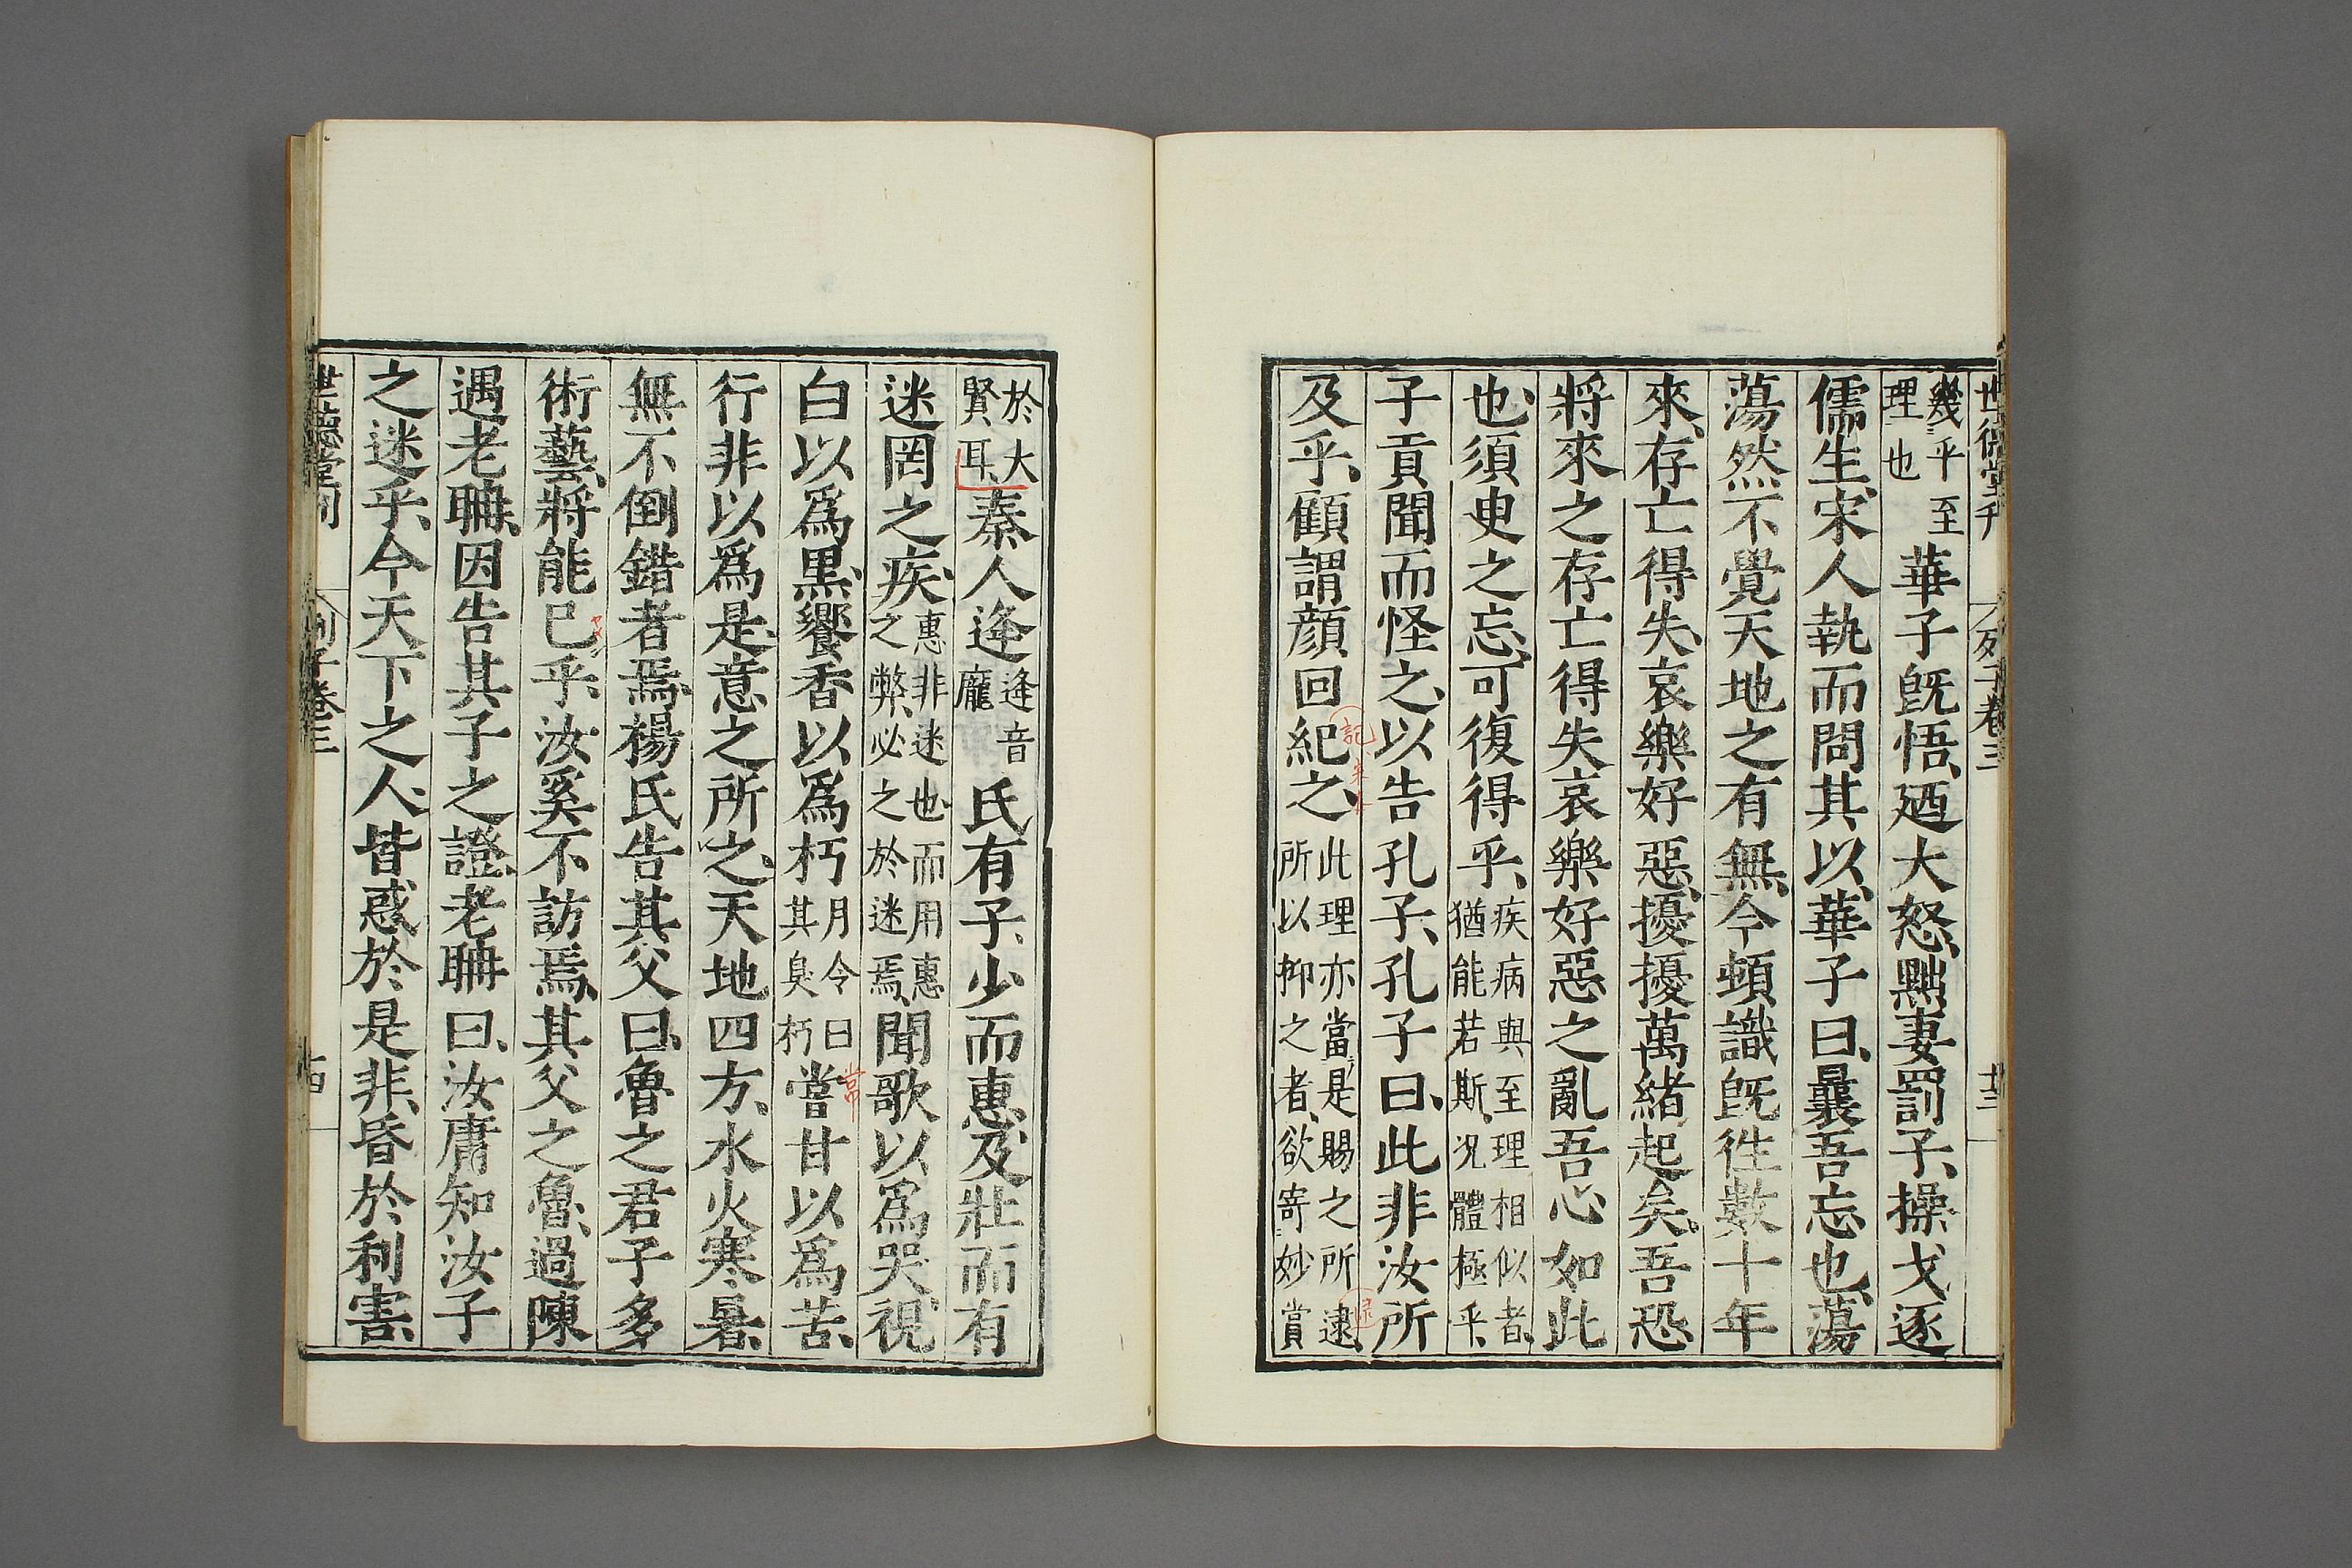 世德堂刊 列子卷三 廿三
幾乎至理也華子既悟、廼大怒、黜妻罰子、操戈逐
儒生、宋人執而問其以、華子曰、曩吾忘也、蕩
蕩然不覺天地之有無、今頓識既徃數十年
來、存亡得失、哀樂好惡、擾擾萬緒起矣。吾恐
將來之存亡得失哀樂好惡之亂吾心如此
也、須臾之忘、可復得乎、疾病與至理相似者、猶能若斯、况體極乎、
子貢聞而怪之、以告孔子、孔子曰、此非汝所
及乎、顧謂顔回紀之、此理亦當是賜之所逮、所以抑之者、欲寄妙賞
記
於大賢耳、秦人逄逄音龐氏有子、少而惠、及壯而有
迷罔之疾、惠非迷也而用惠之弊、必之於迷焉、聞歌以爲哭、視
白以爲黒、饗香以爲朽月令曰其臭朽嘗甘以爲苦、
常
行非以爲是、意之所之、天地四方、水火寒暑、
無不倒錯者焉、楊氏告其父曰、魯之君子多
術藝、將能巳乎、汝奚不訪焉、其父之魯、過陳
遇老聃、因告其子之證、老聃曰、汝庸知汝子
之迷乎、今天下之人、皆惑於是非、昏於利害、
世德堂刊 列子卷三 廿四